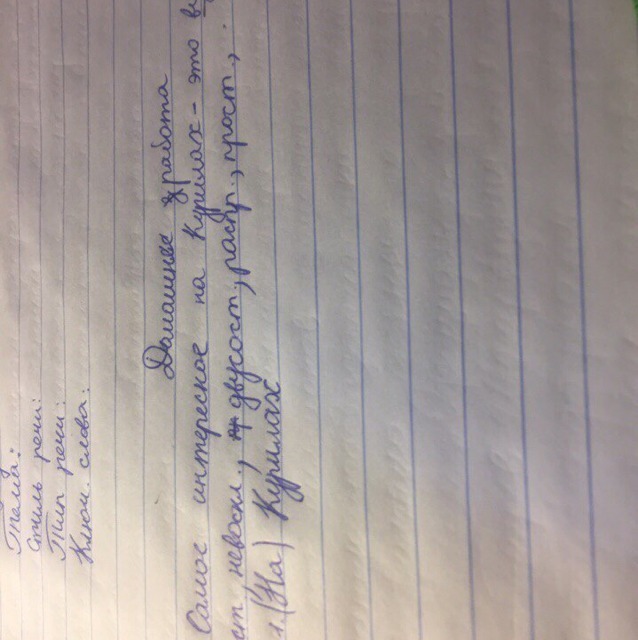 Тема:
Стиль речи:
Тип речи:
Ключ. слова:
Домашнее работа
Самое интересное на Курилах - это
невоск, двусост, распр., прост,
(На) Курилах